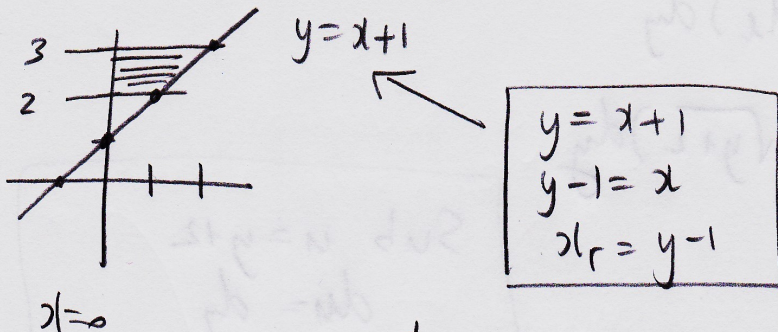 3
y = x+1
2
y = x+1
y-1 = x
x_r = y-1
x=0